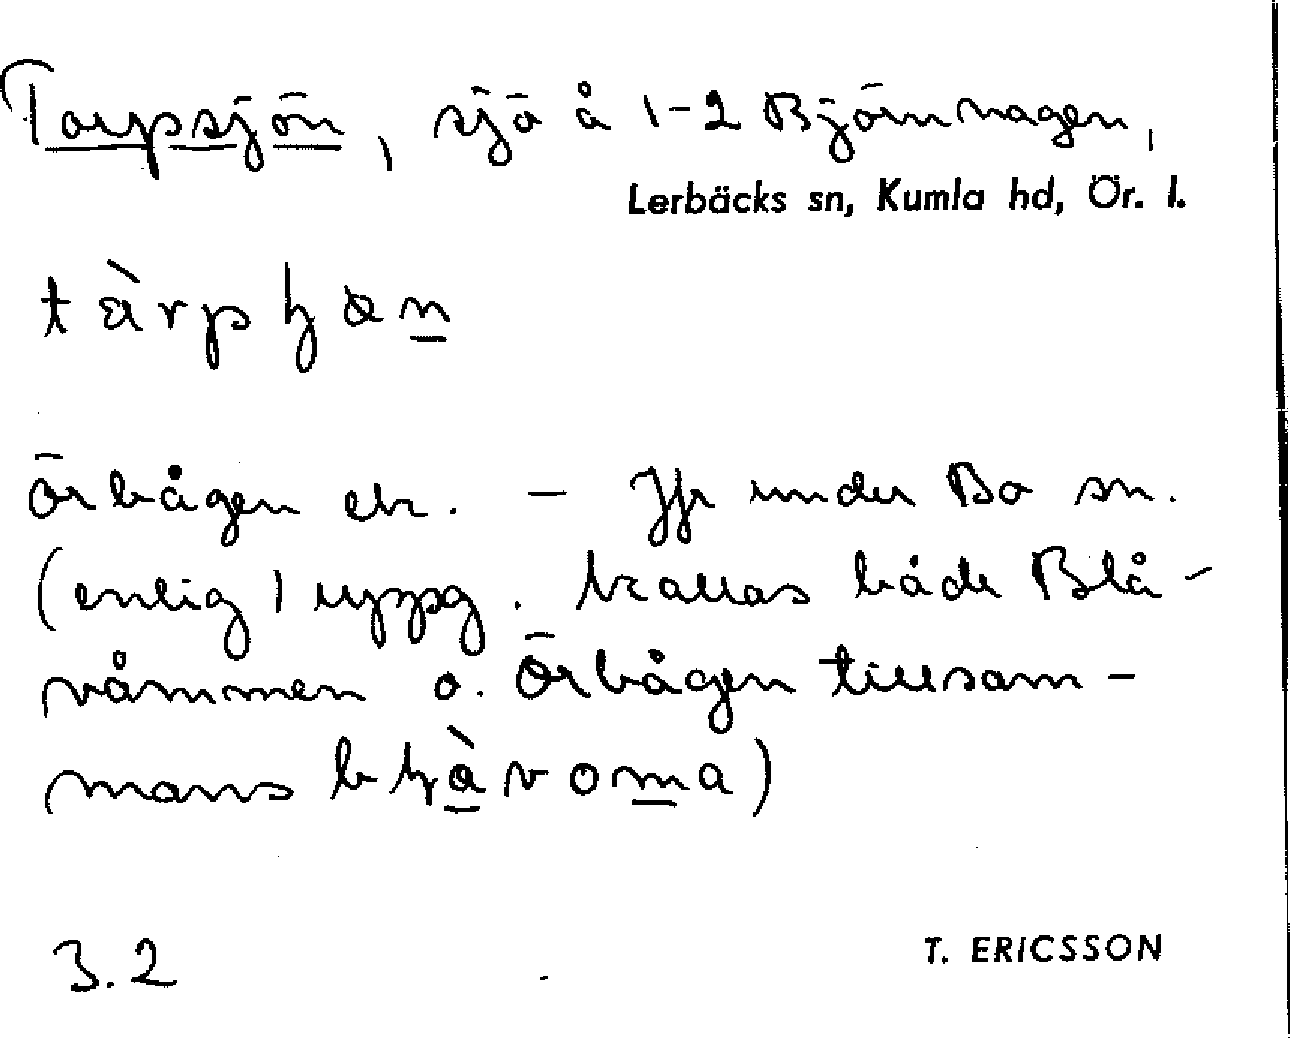 Torpsjön, sjö å 1-2 Björnhagen,
Lerbäcks sn, Kumla hd, Ör. l.
Örbågen ek. – Jfr under Bo sn.
(enlig 1 uppg. kallas både Blå-
våmmen o. Örbågen tillsam-
mans
3.2
T. ERICSSON